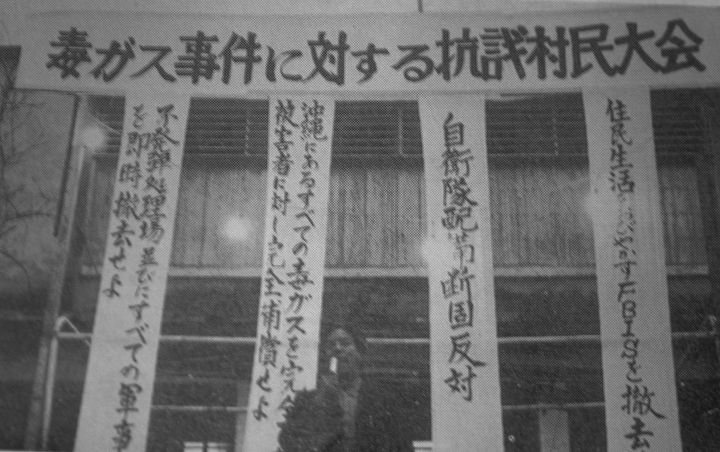 毒ガス事件に対する抗議村民大会
住民生活をおびやかすFBISを撤去
自衛隊配備断固反対
沖縄にあるすべての毒ガスを完全
被害者に対し完全補償せよ
不発弾処理場並びにすべての軍事
を即時撤去せよ